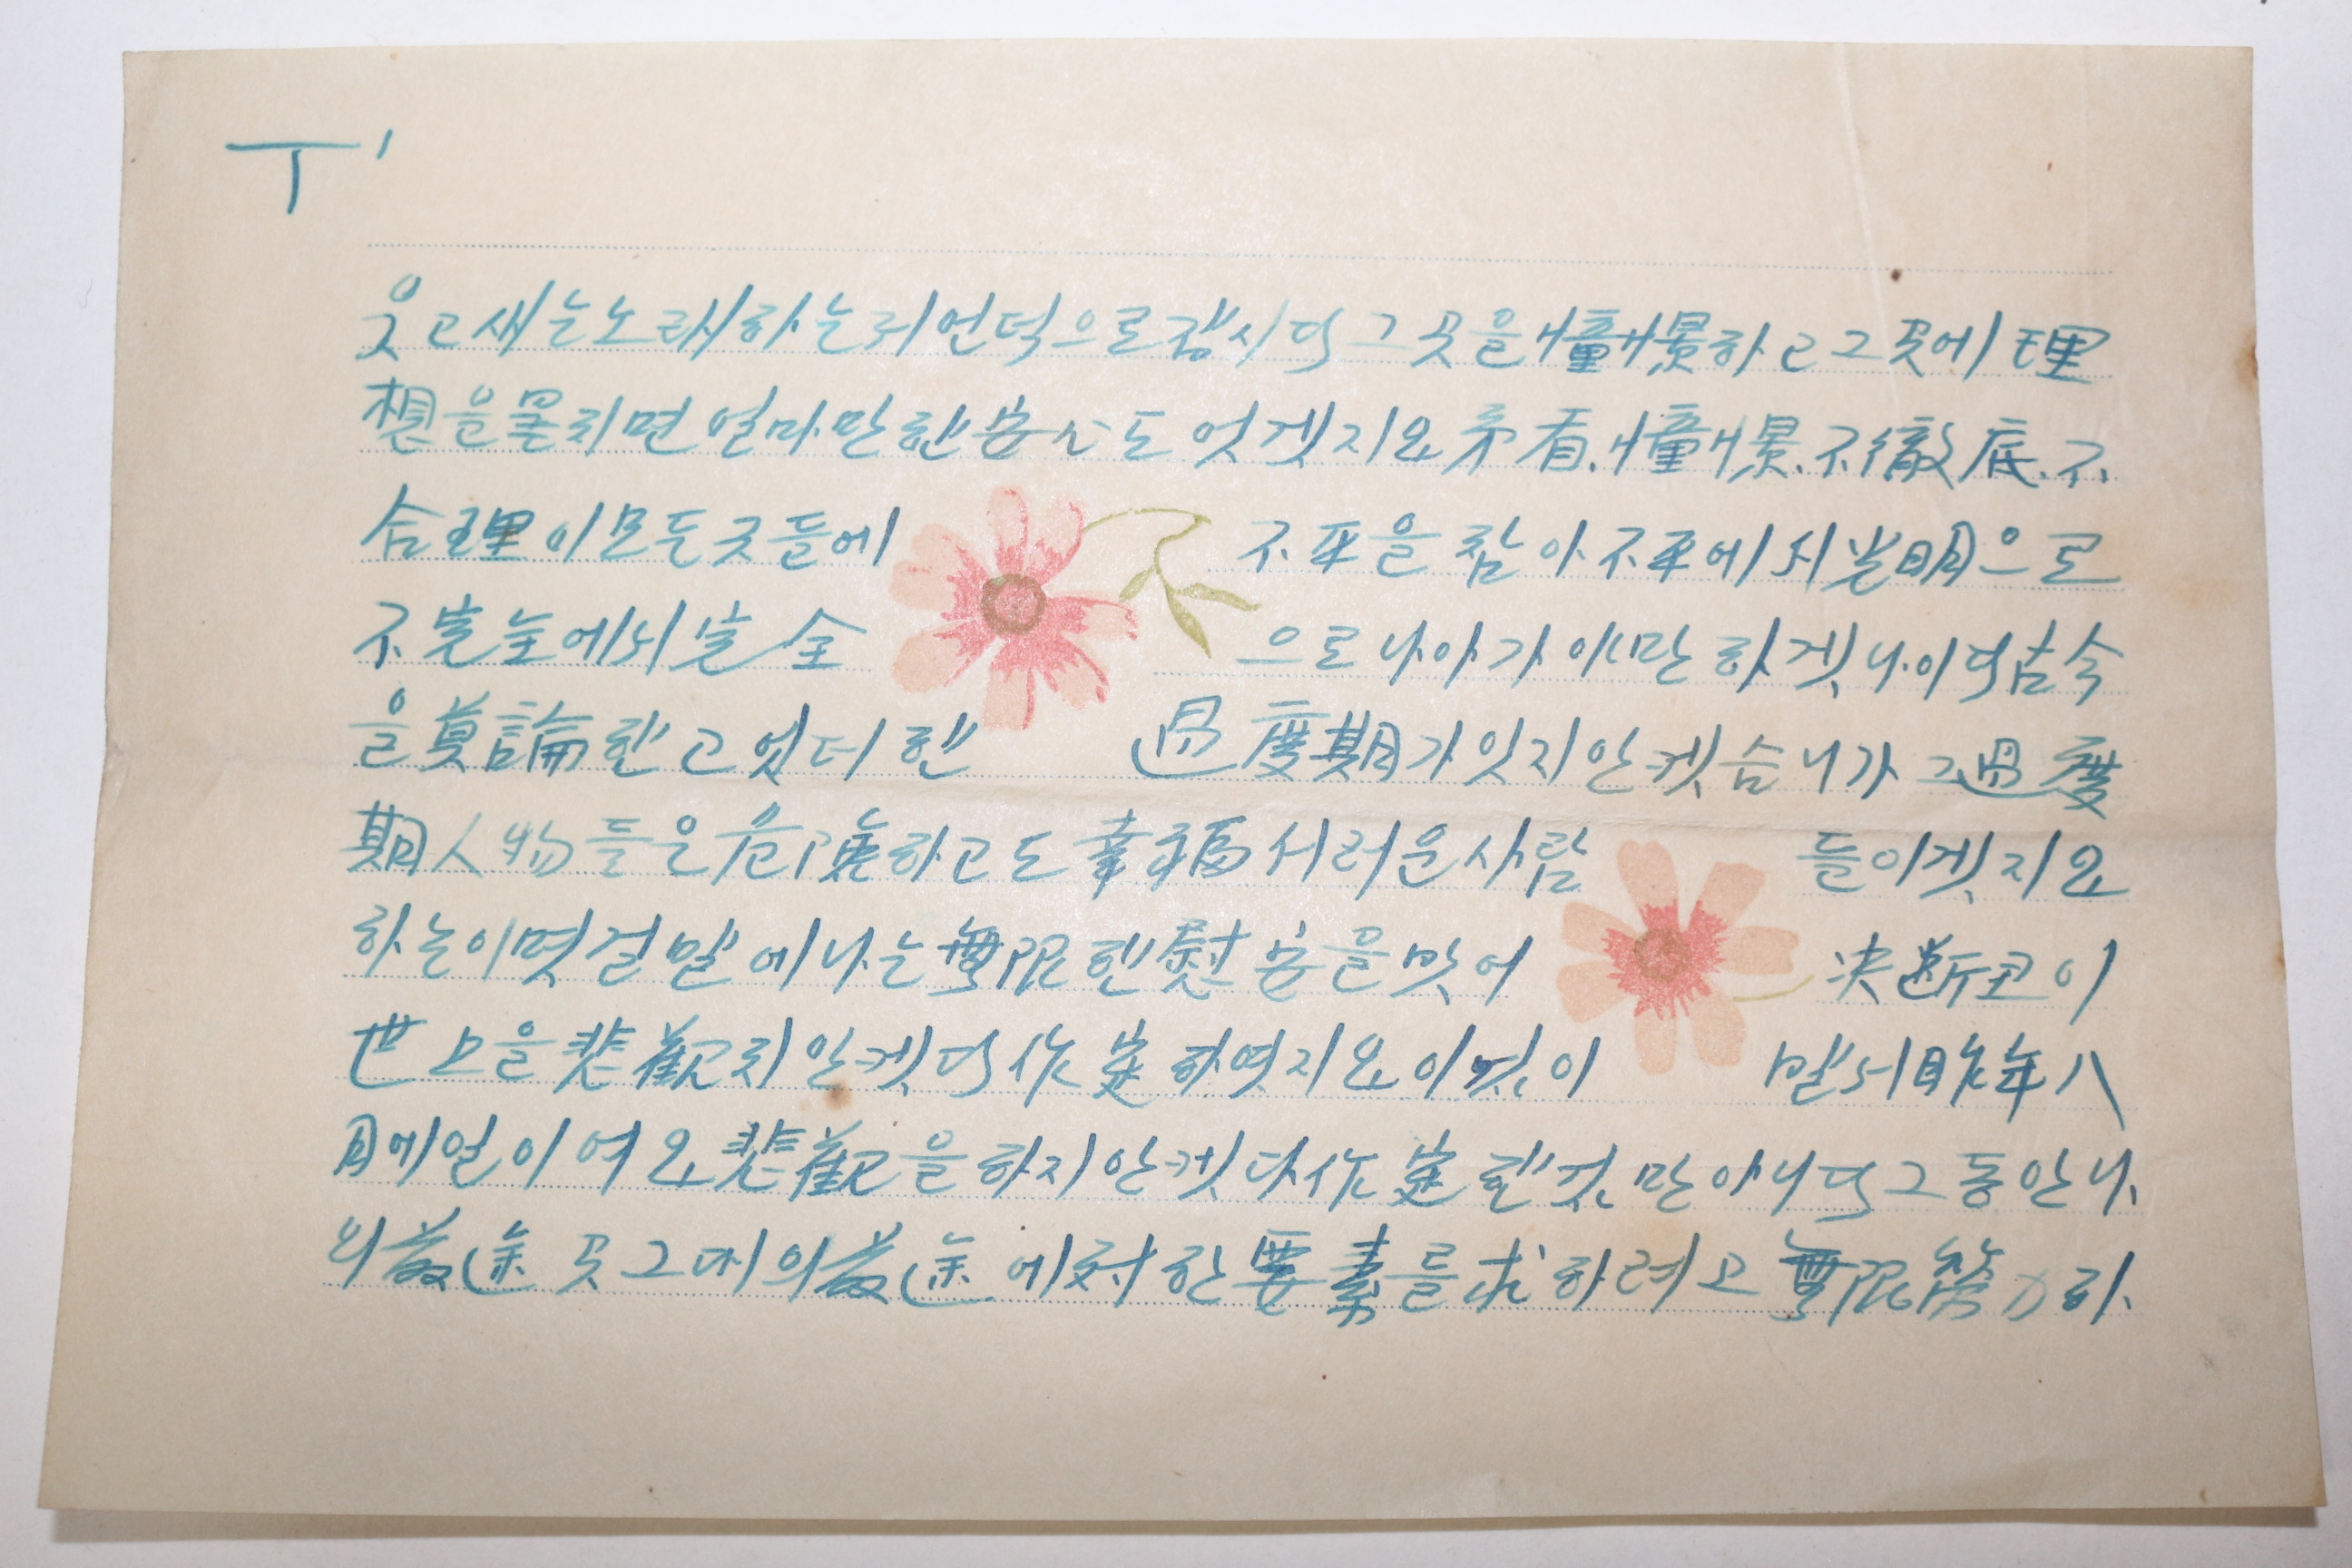 T'
웃고 새는 노래하는 저 언덕으로 갑시다 그곳을 憧憬하고 그곳에 理
想을 꿈귀면 얼마만한 安心도 엇겟지요 矛盾、憧憬、不徹底、不
合理 이 모든 긋들에 不平을 참아 不平에서 光明으로
不完全에서 完全 으로 나아가 이만하겟나이다 古今
을 莫論한고 엇더한 過度期가 잇지 안켓슴니가 그 過度
期 人物들은 危險하고도 幸福시러운 사람 들이겟지요
하는 이 몃 절 말에 나는 無限한 慰安을 맛어 決斷코 이
世上을 悲觀치 안켓다 作定하엿지요 이것이 발서 昨年 八
月에 일이여요 悲觀을 하지 안켓다 作定할 것만 아니다 그동안 나
의 前途 곳 그대의 前途에 対한 要素를 求하려고 無限 努力하